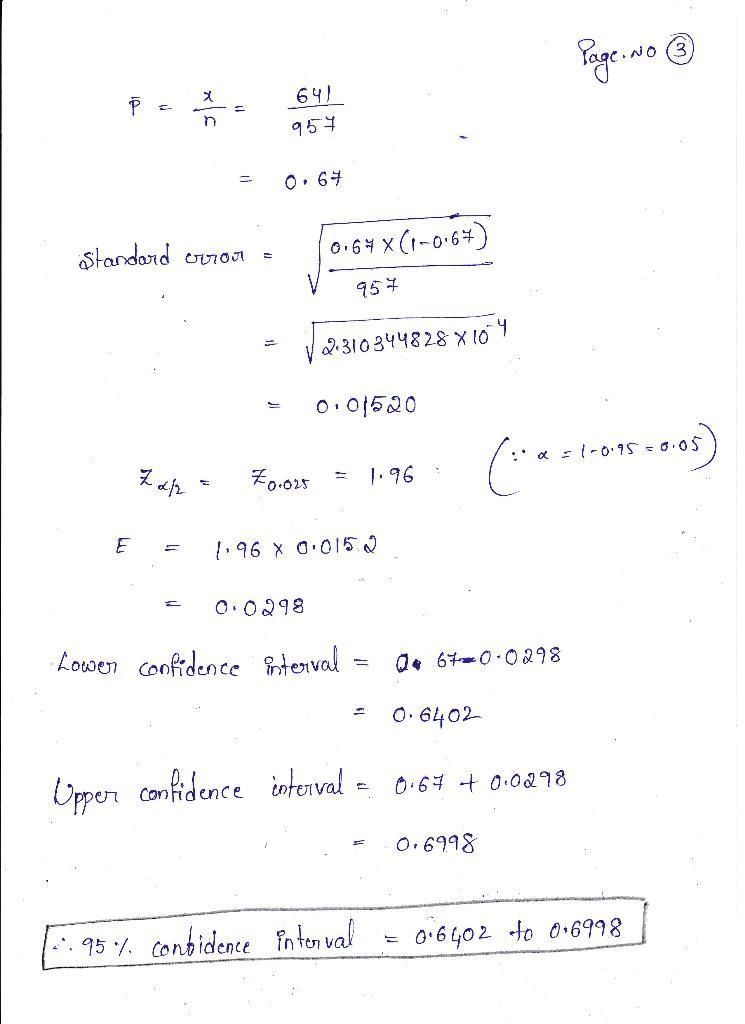 Page.NO ③
p̄ = x/n = 641/957
= 0.67
Standard error = √(0.67 × (1-0.67)/957)
= √(2.310344828 × 10⁻⁴)
= 0.01520
Z α/2 = Z 0.025 = 1.96 (∵ α = 1-0.95 = 0.05)
E = 1.96 × 0.0152
= 0.0298
Lower confidence interval = 0.67-0.0298
= 0.6402
Upper confidence interval = 0.67 + 0.0298
= 0.6998
∴ 95 % confidence interval = 0.6402 to 0.6998